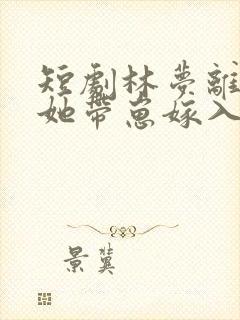 短劇林夢離
她帶崽嫁入
景冀